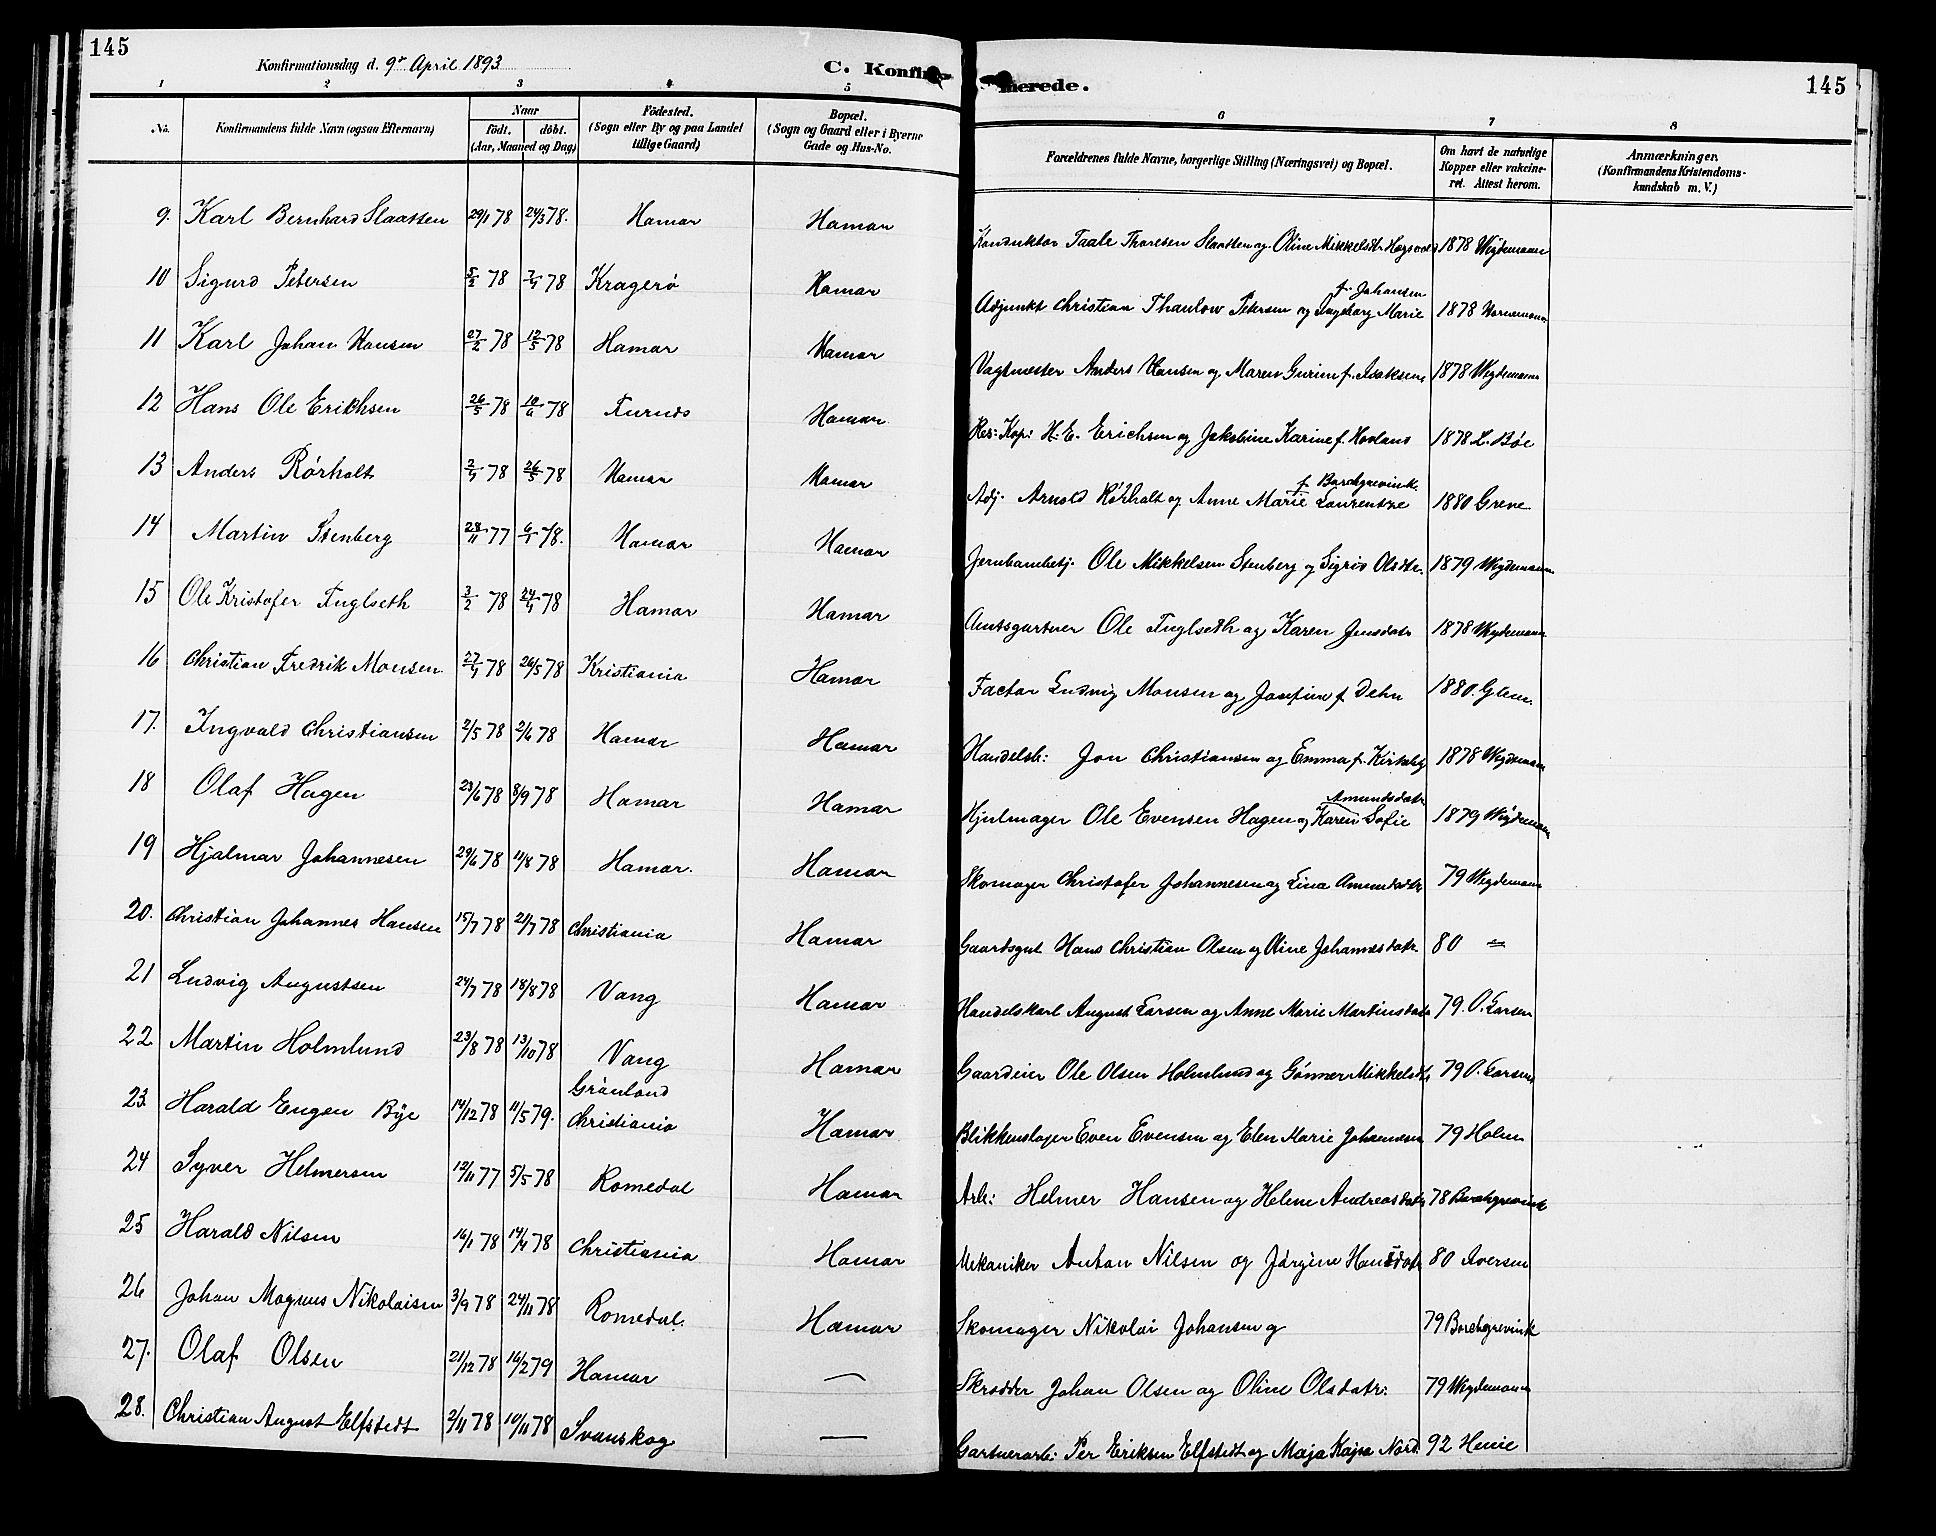 145
Konfirmationsdag d. 9r April 1893
C. Konfir-
merede.
145
1 2 3 4 5 6 7 8
No.
Konfirmandens fulde Navn (ogsaa Efternavn)
Naar
födt. döbt.
(Aar, Maaned og Dag)
Födested.
(Sogn eller By og paa Landet
tillige Gaard)
Bopæl.
(Sogn og Gaard eller i Byerne
Gade og Hus-No.
Forældrenes fulde Navne, borgerlige Stilling (Næringsvei) og Bopæl.
Om havt de naturlige
Kopper eller vakcine-
ret. Attest herom.
Anmærkninger.
(Konfirmandens Kristendoms-
kundskab m. V.)
9. Karl Bernhard Slaatten 29/1 78 24/3 78. Hamar Hamar Konduktør Taale Thoresen Slaatten og Oline Mikkelsdtr. 1878 Wigdemann
10 Sigurd Petersen 5/2 78 7/4 78 Kragerö Hamar Adjunkt Christian Thaulow Petersen og Ingeborg Marie f. Johansen 1878
11 Karl Johan Hansen 27/2 78 12/5 78 Hamar Hamar Vagtmester Anders Hansen og Maren Gurine f. Isaksen 1878 Wigdemann
12 Hans Ole Erichsen 26/5 78 10/6 78 Furnes Hamar Res: Kap: H. E. Erichsen og Jakobine Karine f. Hovland 1878 L. Bøe
13 Anders Rörholt 2/4 78 26/5 78 Hamar Hamar Adj. Arnold Rörholt og Anne Marie Laurentze f. Borchgrevink 1880 Greve
14 Martin Stenberg 28/11 77 6/1 78. Hamar Hamar Jernbanebetj. Ole Mikkelsen Stenberg og Sigrid Olsdtr. 1879 Wigdemann
15 Ole Kristofer Fuglseth 3/2 78 24/4 78 Hamar Hamar Amtsgartner Ole Fuglseth og Karen Jensdatr 1878 Wigdemann
16 Christian Fredrik Monsen 27/4 78 26/5 78 Kristiania Hamar Factor Ludvig Monsen og Josefine f. Dehn 1880.
17. Ingvald Christiansen 2/5 78 2/6 78 Hamar Hamar Handelsb: Jon Christiansen og Emma f. Kirkeby 1878 Wigdemann
18 Olaf Hagen 23/6 78 8/9 78 Hamar Hamar Hjulmager Ole Evensen Hagen og Karen Sofie Amundsdatr 1879 Wigdemann
19 Hjalmar Johannesen 29/6 78 11/8 78 Hamar. Hamar Skomager Christofer Johannesen og Lina Amundsdtr 79 Wigdemann
20. Christian Johannes Hansen 15/7 78 21/7 78 Christiania Hamar Gaardsgut Hans Christian Olsen og Oline Johannesdatr 80 —
21 Ludvig Augustsen 24/7 78 18/8 78 Vang Hamar Handelskarl August Larsen og Anne Marie Martinsdatr 79. O. Larsen
22 Martin Holmlund 23/8 78 13/10 78 Vang Hamar Gaardeier Ole Olsen Holmlund og Gönner Mikkelsdtr 79 O. Larsen
23. Harald Eugen Bÿe 14/12 78 11/5 79. Grönland Christiania Hamar Blikkenslager Even Evensen og Elen Marie Johannesen 79 Holm
24 Syver Helmersen 12/11 77 5/5 78 Romedal Hamar Arb: Helmer Hansen og Helene Andreasdatr 78 Borchgrevink
25 Harald Nilsen 16/1 78 14/4 78 Christiania Hamar Mekaniker Anton Nilsen og Jörgine Hansdatr 80 Iversen
26 Johan Magnus Nikolaisen 3/9 78 24/11 78 Romedal. Hamar Skomager Nikolai Johansen og 79 Borchgrevink
27. Olaf Olsen 21/12 78 16/2 79 Hamar — Skrædder Johan Olsen og Oline Olsdatr: 79 Wigdemann
28. Christian August Elfstedt 2/11 78 10/11 78 Svanskog — Gartnerarb: Per Eriksen Elfstedt og Maja Kajsa Nord. 92 Henie